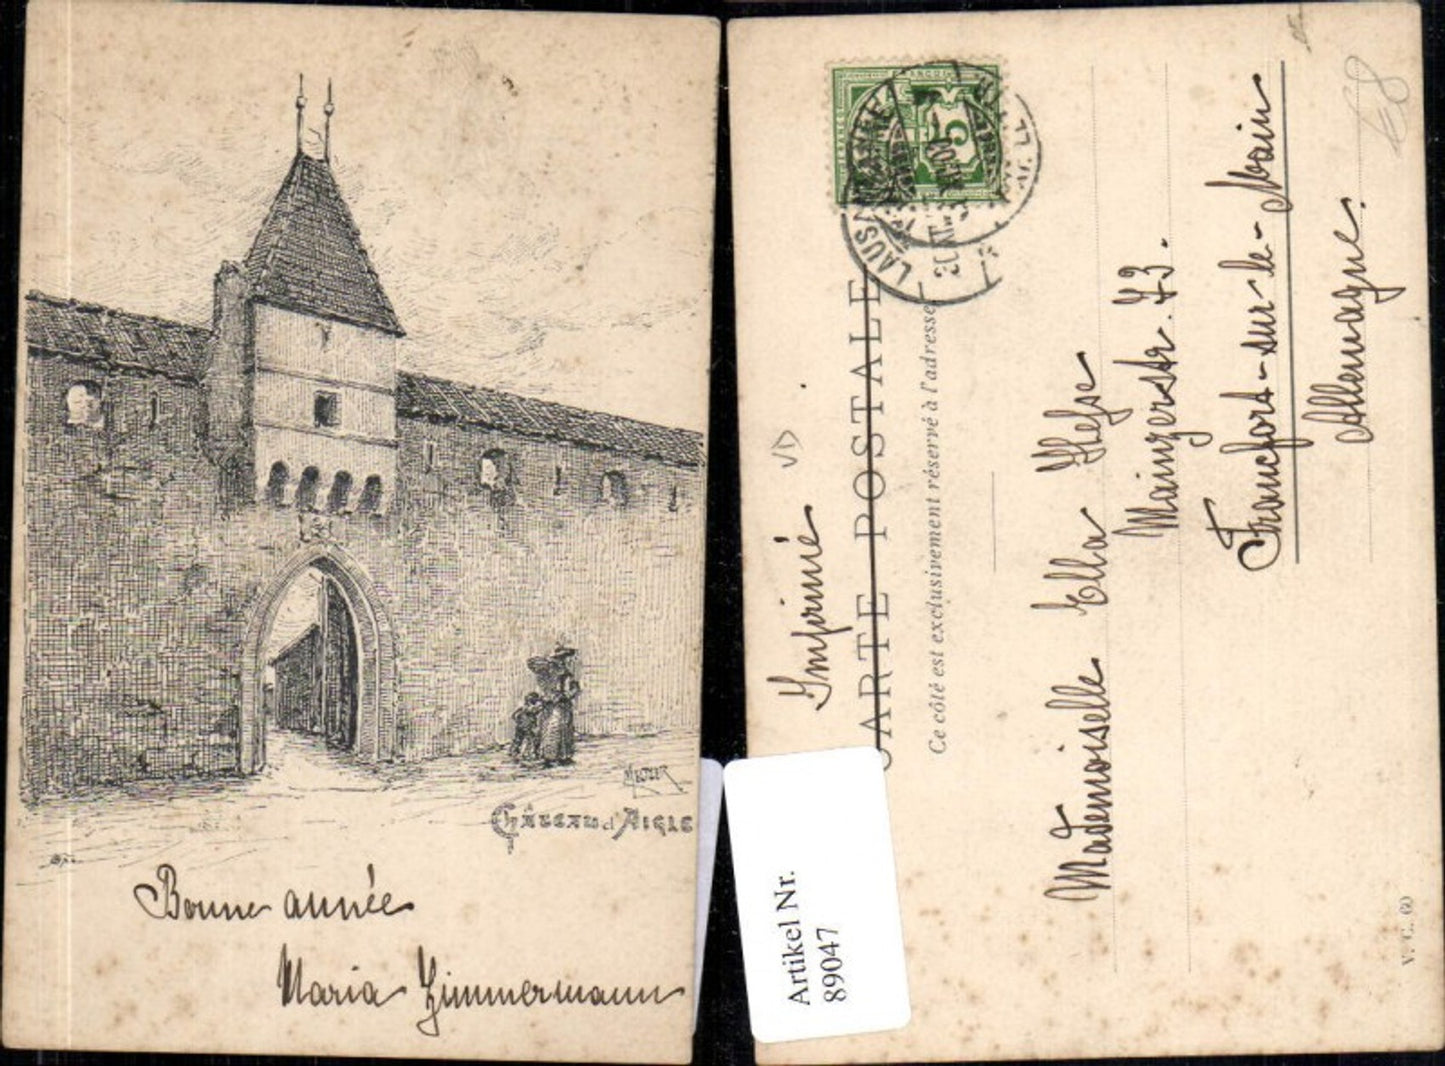 MELZER
Château d'Aigle
Bonne année
Maria Zimmermann
Imprimé
VD
CARTE POSTALE
Ce côté est exclusivement réservé à l'adresse
5
LAUSANNE
Mademoiselle Ella Hesse
Mainzerstr. 73.
Francfort-sur-le-Main
Allemagne.
V. C. 60
Artikel Nr.
89047